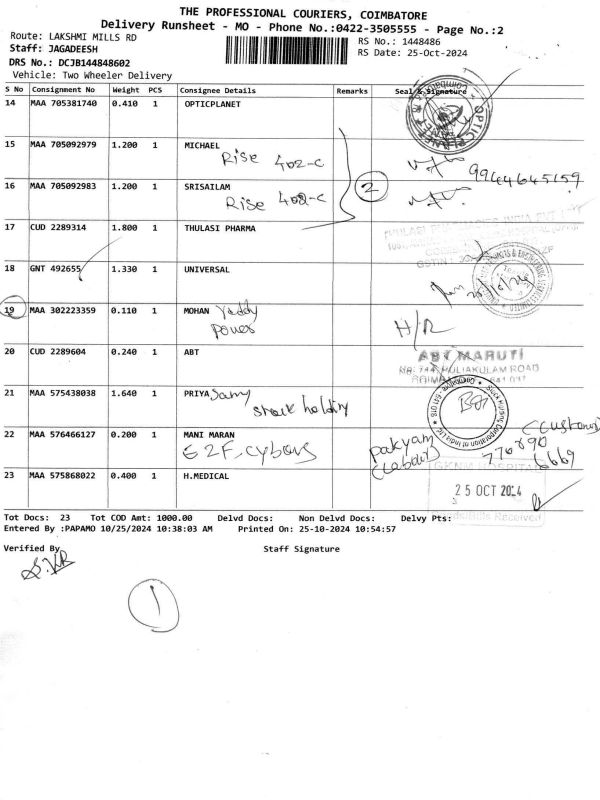 THE PROFESSIONAL COURIERS, COIMBATORE
Delivery Runsheet - MO - Phone No.:0422-3505555 - Page No.:2
Route: LAKSHMI MILLS RD
RS No.: 1448486
Staff: JAGADEESH
RS Date: 25-Oct-2024
DRS No.: DCJB144848602
Vehicle: Two Wheeler Delivery
S No Consignment No Weight PCS Consignee Details Remarks Seal & Signature
14 MAA 705381740 0.410 1 OPTICPLANET
OPTIC PLANET
15 MAA 705092979 1.200 1 MICHAEL
Rise 402-C
9944645159
16 MAA 705092983 1.200 1 SRISAILAM
Rise 402-C
2
17 CUD 2289314 1.800 1 THULASI PHARMA
18 GNT 492655 1.330 1 UNIVERSAL
19 MAA 302223359 0.110 1 MOHAN
power
H/R
20 CUD 2289604 0.240 1 ABT
ABT MARUTI
PULIAKULAM ROAD
21 MAA 575438038 1.640 1 PRIYA Samy
stock holding
Stock Holding Corporation of India Ltd.
Coimbatore - 641 018
22 MAA 576466127 0.200 1 MANI MARAN
E2F-cybors
(customer)
770890
6669
23 MAA 575868022 0.400 1 H.MEDICAL
GKNM HOSPITAL
25 OCT 2024
Received
Tot Docs: 23 Tot COD Amt: 1000.00 Delvd Docs: Non Delvd Docs: Delvy Pts:
Entered By :PAPAMO 10/25/2024 10:38:03 AM Printed On: 25-10-2024 10:54:57
Verified By Staff Signature
1